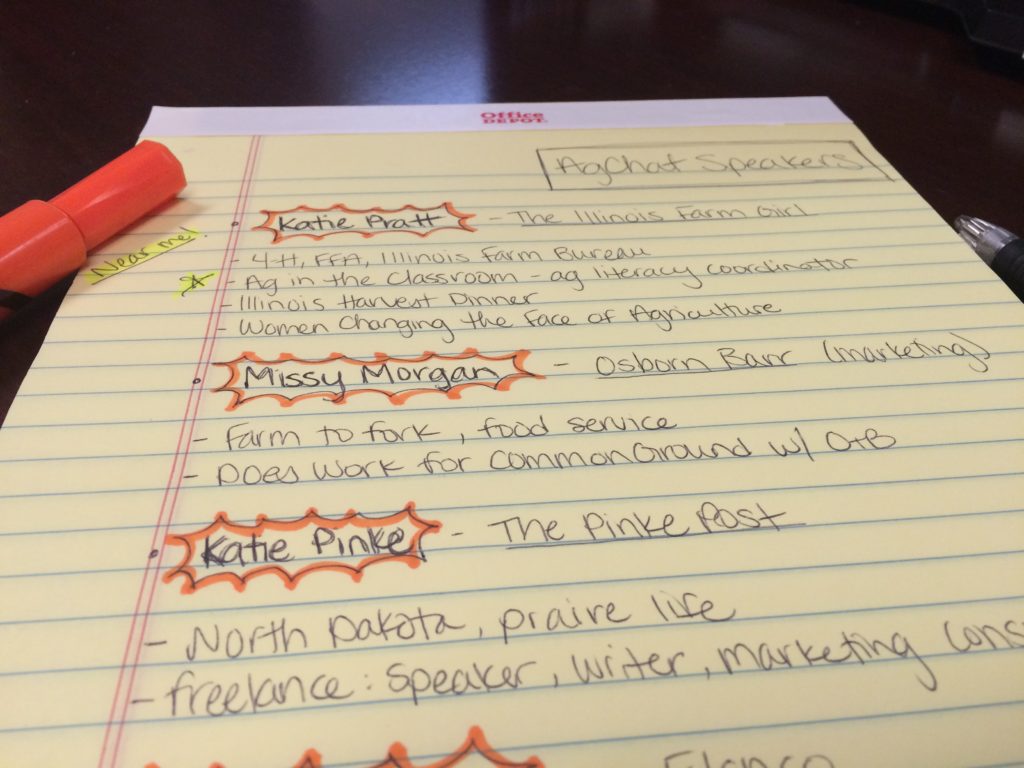 Office
DEPOT.
AgChat Speakers
• Katie Pratt - The Illinois Farm Girl
Near me!
- 4-H, FFA, Illinois Farm Bureau
- Ag in the Classroom - ag literacy coordinator
- Illinois Harvest Dinner
- Women Changing the Face of Agriculture
• Missy Morgan - Osborn Barr (marketing)
- Farm to fork, food service
- Does work for CommonGround w/ O+B
• Katie Pinke - The Pinke Post
- North Dakota, praire life
- freelance: speaker, writer, marketing cons
Elanco